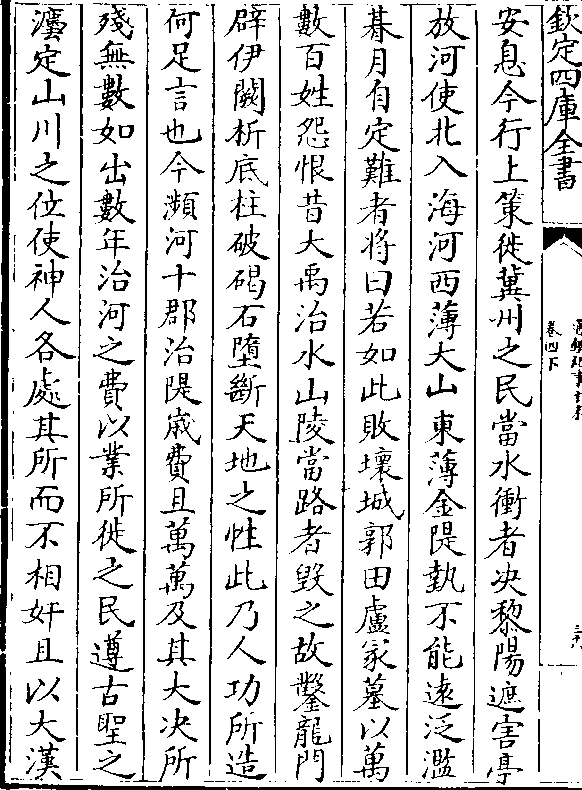 欽定四庫全書
卷四下
安息今行上策徙冀州之民當水衝者决黎陽遮害亭
放河使北入海河西薄大山東薄金隄埶不能遠泛濫
朞月自定難者將曰若如此敗壞城郭田廬冡墓以萬
數百姓怨恨昔大禹治水山陵當路者毁之故鑿龍門
辟伊闕析底柱破碣石墮斷天地之性此乃人功所造
何足言也今瀕河十郡治隄歳費且萬萬及其大决所
殘無數如出數年治河之費以業所徙之民遵古聖之
灋定山川之位使神人各處其所而不相奸且以大漢